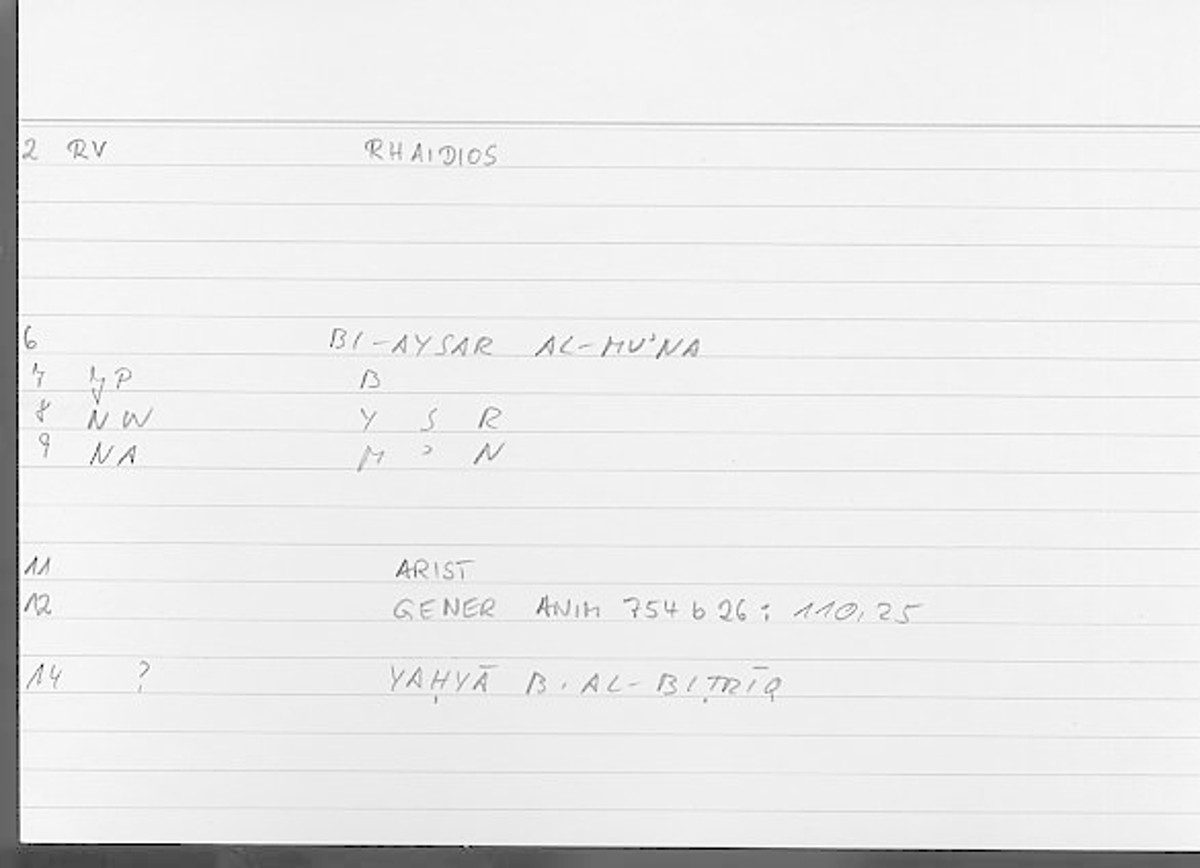 2 RV RHAIDIOS
6 BI-AYSAR AL-MU'NA
7 P B
8 NW Y S R
9 NA M ʾ N
11 ARIST
12 GENER ANIM 754 b 26 ; 110,25
14 ? YAḤYĀ B. AL-BIṬRĪQ